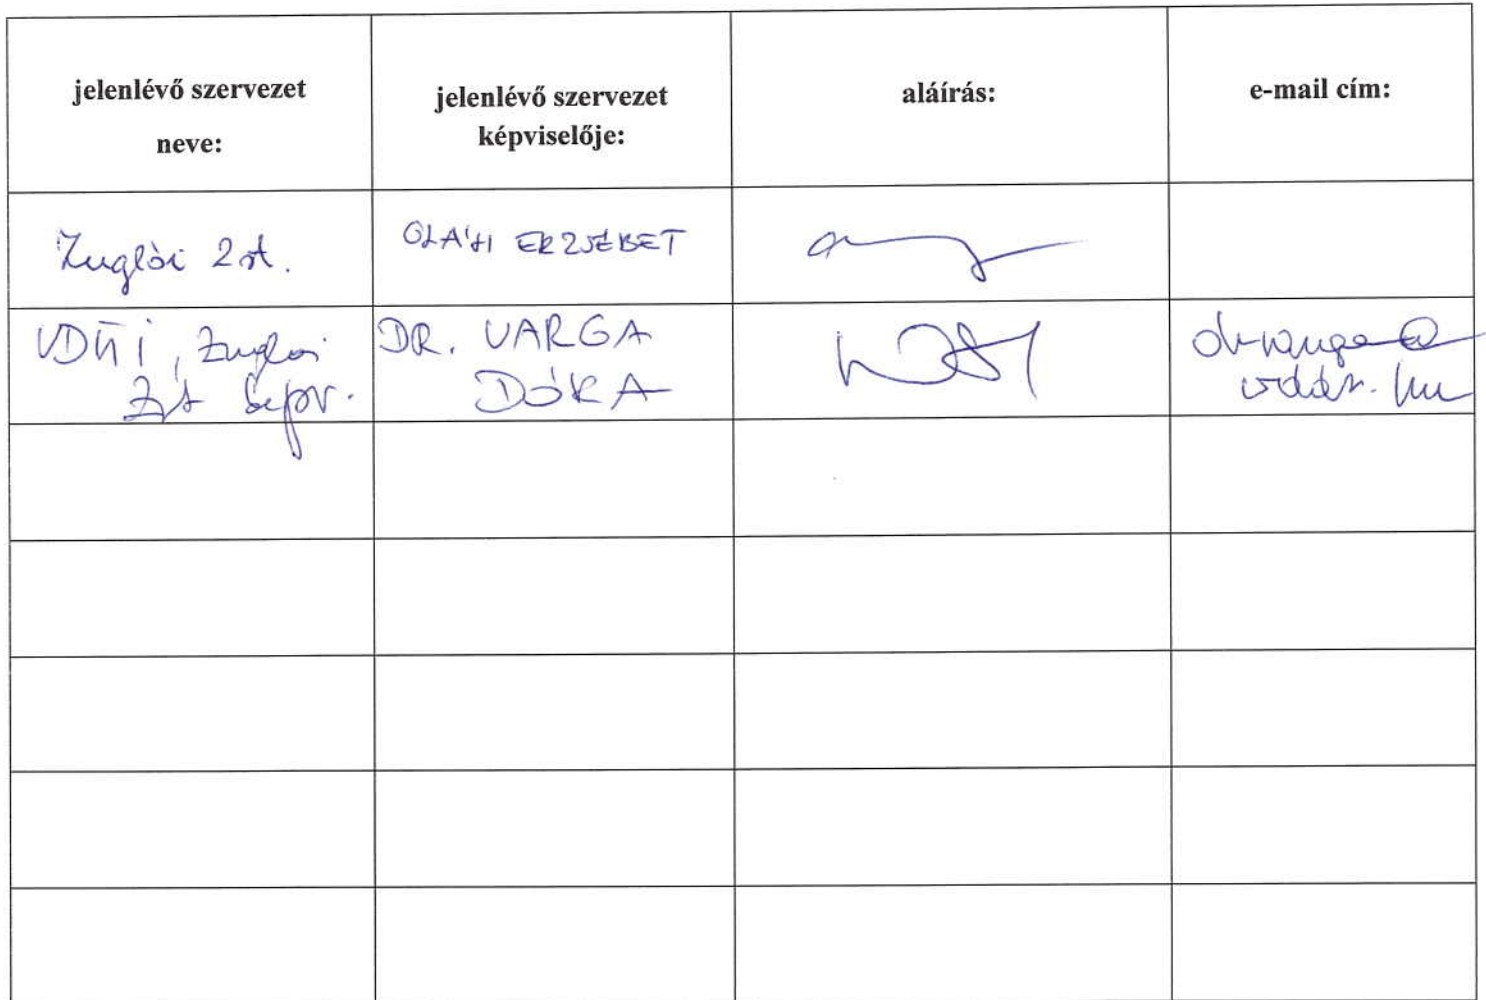 jelenlévő szervezet
neve:
jelenlévő szervezet
képviselője:
aláírás:
e-mail cím:
Zuglói Zrt.
OLÁH ERZSÉBET
Zuglói
Zrt képv.
DR. VARGA
DÓRA